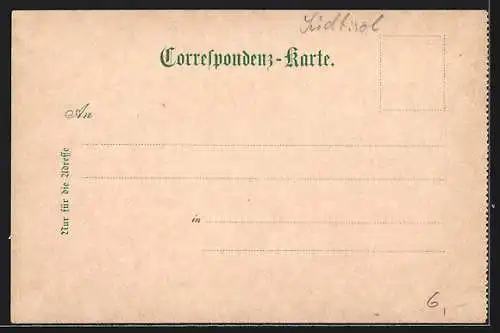 Südtirol
Correspondenz-Karte.
An
Nur für die Adresse
in
6,-